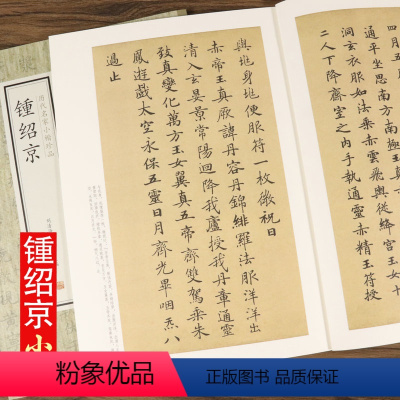 四月五
通平坐思南方南極
洞玄衣服如法乘赤雲飛輿從絳宮玉女
二人下降齋室之内手執通靈赤精玉符授
與地身地便服符一枚微祝曰
赤帝真厥諱丹容丹錦緋羅法服洋洋出
清入玄晏景常陽迴降我廬授我丹章通靈
致真變化萬方玉女翼真五帝齊雙駕乘朱
鳳遊戲太空永保五靈日月齊光畢咽炁八
過止
历代名家小楷珍品
锺绍京
锺绍京小
粉象优品